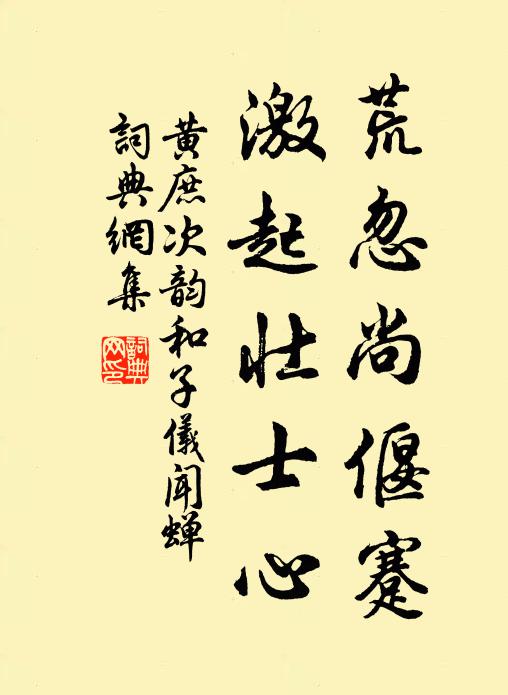 荒忽尚偃蹇
激起壮士心
黄庶次韵和子儀闻蝉
詞典網集
詞典网印